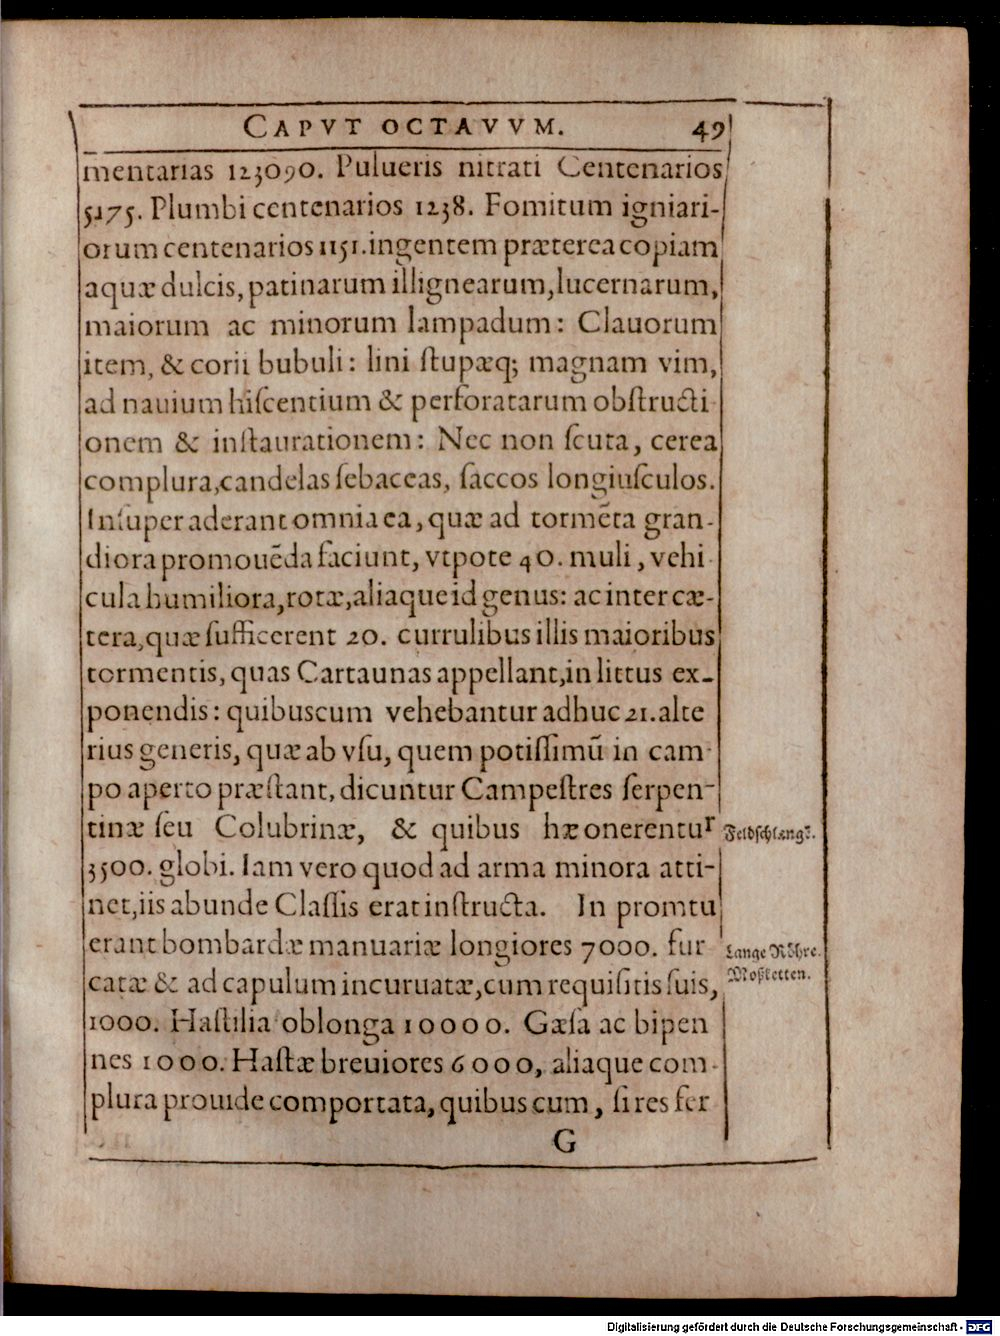 CAPVT OCTAVVM. 49
mentarias 123090. Pulueris nitrati Centenarios
5175. Plumbi centenarios 1238. Fomitum igniari-
orum centenarios 1151. ingentem præterea copiam
aquæ dulcis, patinarum illignearum, lucernarum,
maiorum ac minorum lampadum: Clauorum
item, & corii bubuli: lini stupæq; magnam vim,
ad nauium hiscentium & perforatarum obstructi
onem & instaurationem: Nec non scuta, cerea
complura, candelas sebaceas, saccos longiusculos.
Insuper aderant omnia ea, quæ ad tormēta gran-
diora promouēda faciunt, vtpote 40. muli, vehi
cula humiliora, rotæ, aliaque id genus: ac inter cæ-
tera, quæ sufficerent 20. currulibus illis maioribus
tormentis, quas Cartaunas appellant, in littus ex-
ponendis: quibuscum vehebantur adhuc 21. alte
rius generis, quæ ab vsu, quem potissimū in cam-
po aperto præstant, dicuntur Campestres serpen-
tinæ seu Colubrinæ, & quibus hæ onerentur
Feldschlang.
3500. globi. Iam vero quod ad arma minora atti-
net, iis abunde Classis erat instructa. In promtu
erant bombardæ manuariæ longiores 7000. fur
Lange Röhre.
catæ & ad capulum incuruatæ, cum requisitis suis,
Moßketten.
1000. Hastilia oblonga 10000. Gæsa ac bipen
nes 1000. Hastæ breuiores 6000, aliaque com-
plura prouide comportata, quibus cum, si res fer
G
Digitalisierung gefördert durch die Deutsche Forschungsgemeinschaft - DFG